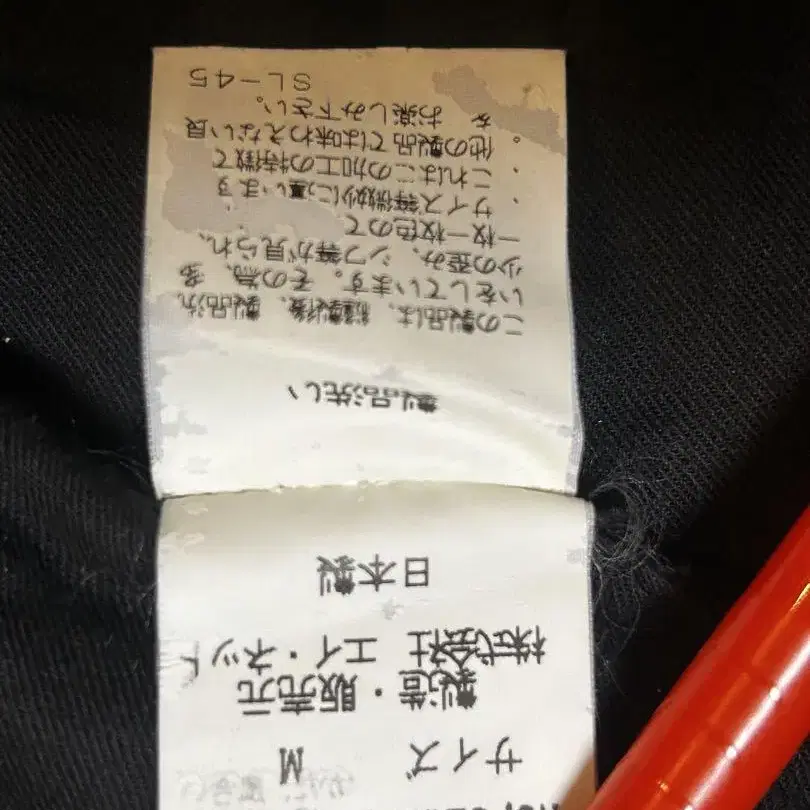 サイズ M
製造・販売元
株式会社 エイ・ネット
日本製
製品洗い
この製品は、縫製後、製品洗
いをしています。その為、多
少の歪み、シワ等が見られ、
一枚一枚色ので
、サイズ等微妙に違います
、これはこの加工の特徴で
。他の製品では味わえない良
を お楽しみ下さい。
SL-45